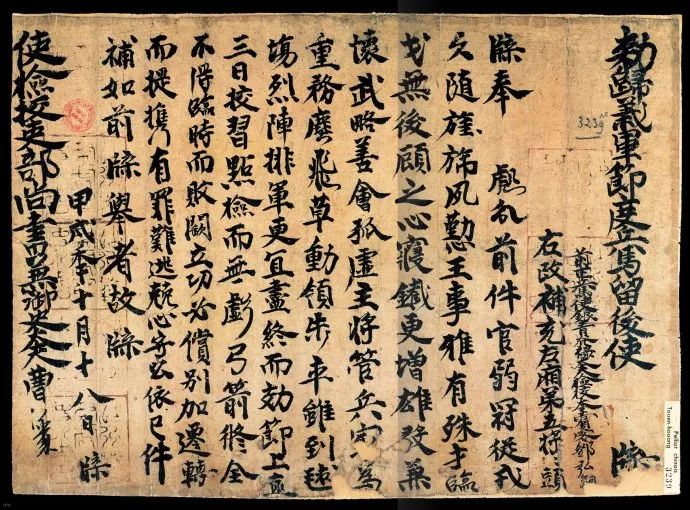 敕歸義軍節度兵馬留後使 牒
前正兵馬使銀青光祿大夫檢校太子賓客鄧弘嗣
右改補充左廂第五將將頭
牒奉 處分前件官弱冠從戎
久隨旌旆夙勤王事雅有殊才臨
戈無後顧之心寢鐵更增雄毅兼
懷武略善會孤虛主將管兵最為
重務塵飛草動領步卒雖到毬
場烈陣排軍更宜盡終而効節上直
三日校習點檢而無虧弓箭修全
不得臨時而敗闕立功必償別加遷轉
而提攜有罪難逃兢心守公依已件
補如前牒舉者故牒
甲戌年十月十八日牒
使檢校吏部尚書兼御史大夫曹
3239
Pelliot chinois
Touen-houang
3239